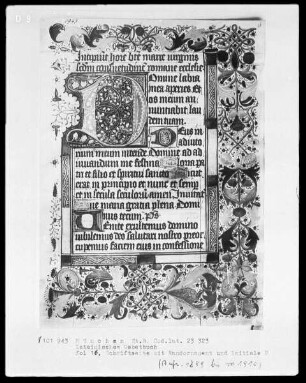 Incipiunt hore bte marie virginis
secdm consuetudinem romane ecclesie
Domine labia
mea aperies Et
os meum an
nunciabit lau
dem tuam.
Deus in
adiuto
rium meum intende Domine ad ad
iuvandum me festina Gloria pa
tri et filio et spiritui sancto Sicut
erat in principio et nunc et semp
et in secula seculorum amen Invitato
Ave maria gratia plena Domi
nus tecum. Ps
Venite exultemus domino
iubilemus deo salutari nostro preoc
cupemus faciem eius in confessione
München St.B. Cod.lat. 23 323
Lateinisches Gebetbuch
Fol 16, Schriftseite mit Randornament und Initiale D